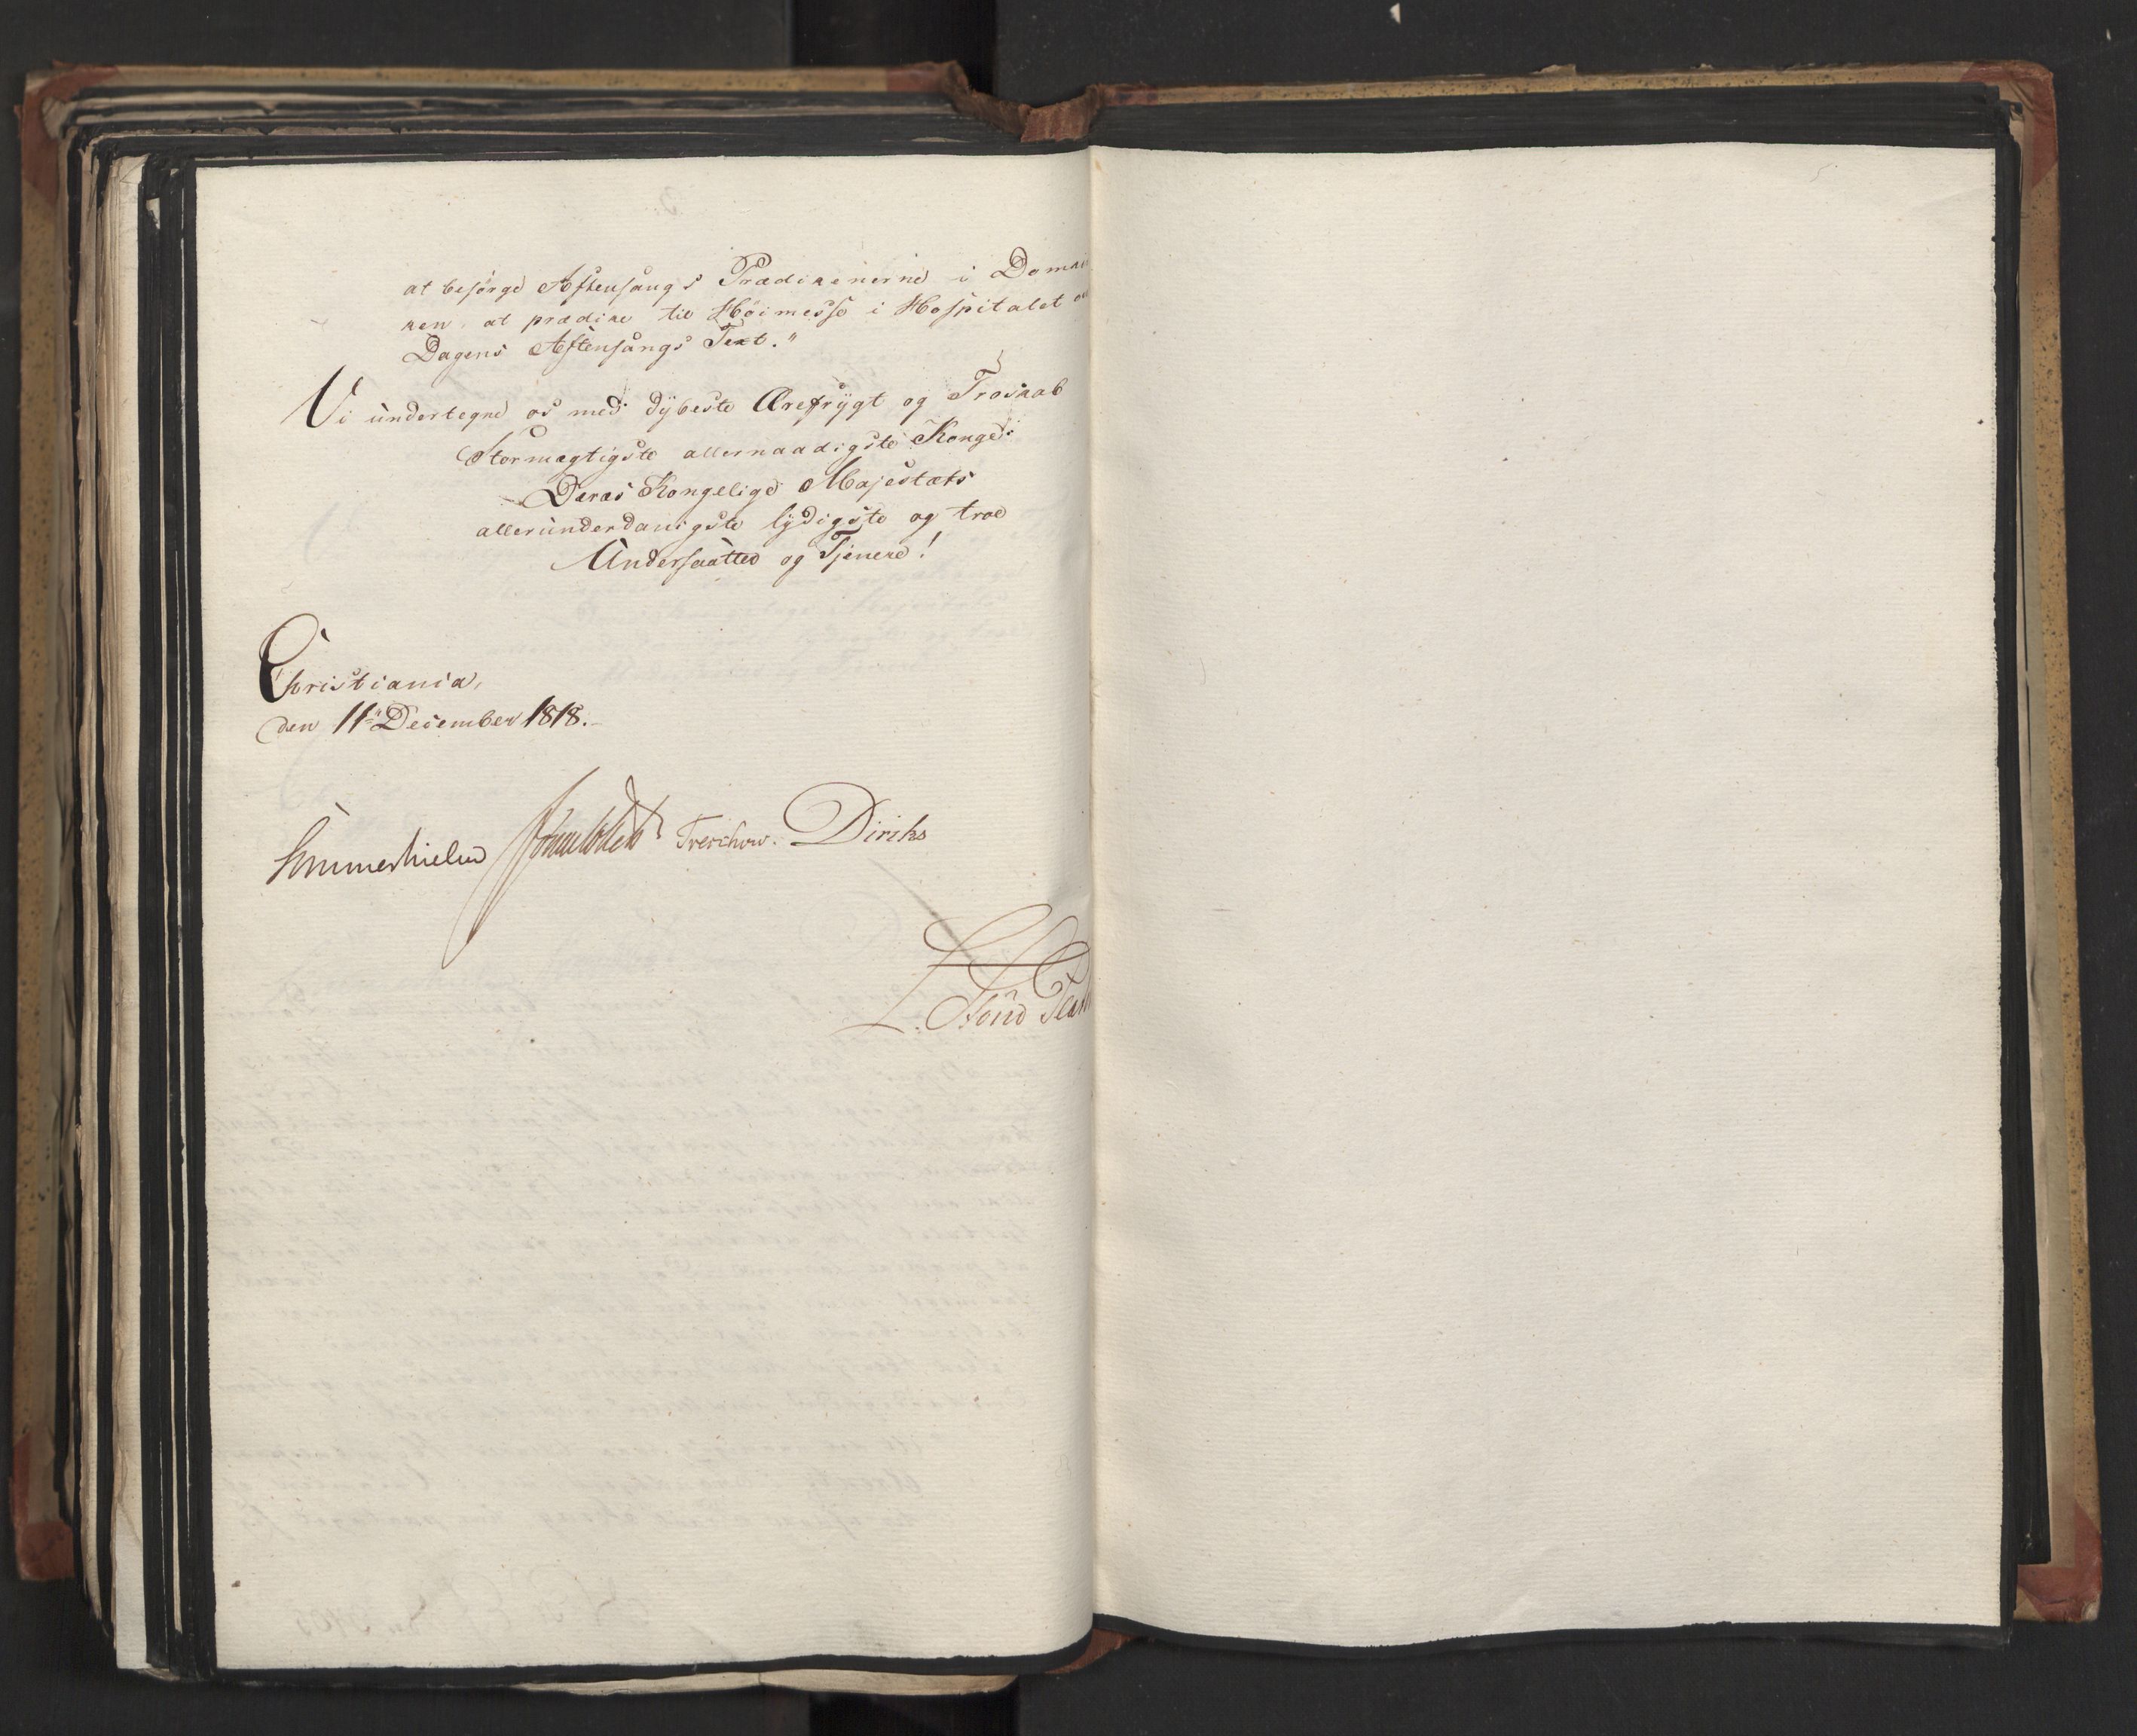 at besørge Aftensangs Prædikenerne i Domkir
ken, at prædike til Høimesse i Hospitalet
Dagens Aftensangs Text."
Vi undertegne os med dybeste Ærefrygt og Troskab
Stormægtigste allernaadigste Konge!
Deres Kongelige Majestæts
allerunderdanigste lydigste og troe
Undersaatter og Tjenere!
Christiania,
den 11te December 1818.
Sommerhielm Treschow. Diriks
L.